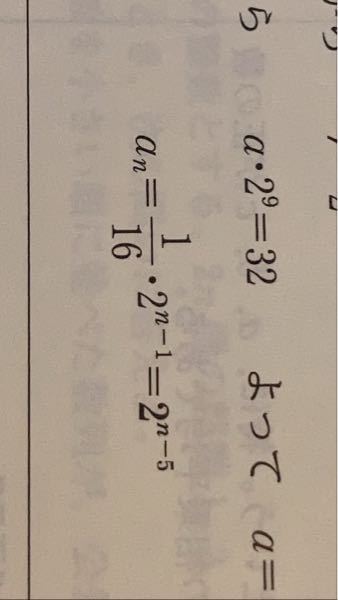 ら
a·2⁹=32 よって a=
aₙ=1/16·2ⁿ⁻¹=2ⁿ⁻⁵